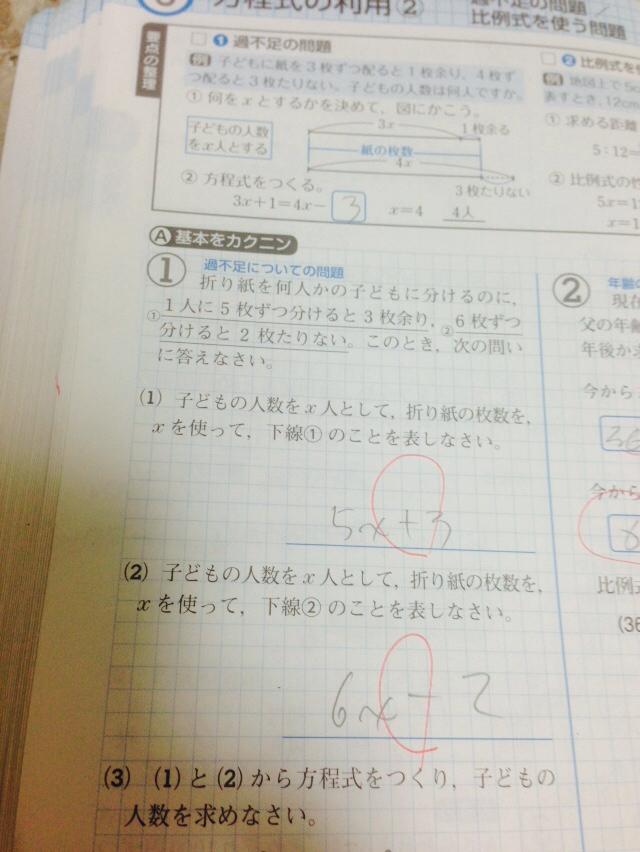 方程式の利用②
過不足の問題
比例式を使う問題
要点の整理
❶ 過不足の問題
例 子どもに紙を3枚ずつ配ると1枚余り，4枚ず
つ配ると3枚たりない。子どもの人数は何人ですか。
① 何をxとするかを決めて，図にかこう。
子どもの人数
をx人とする
3x
1枚余る
紙の枚数
4x
3枚たりない
② 方程式をつくる。
3x+1=4x-3 x=4 4人
❷ 比例式を
例 地図上で5c
表すとき，12cm
① 求める距離
5:12=
② 比例式の
5x=1
x=1
Ⓐ 基本をカクニン
① 過不足についての問題
折り紙を何人かの子どもに分けるのに，
①1人に5枚ずつ分けると3枚余り，②6枚ずつ
分けると2枚たりない。このとき，次の問い
に答えなさい。
(1) 子どもの人数をx人として，折り紙の枚数を，
xを使って，下線①のことを表しなさい。
5x+3
(2) 子どもの人数をx人として，折り紙の枚数を，
xを使って，下線②のことを表しなさい。
6x-2
(3) (1)と(2)から方程式をつくり，子どもの
人数を求めなさい。
② 年齢
現在
父の年齢
年後か
今から
36
今から
8
比例式
(36